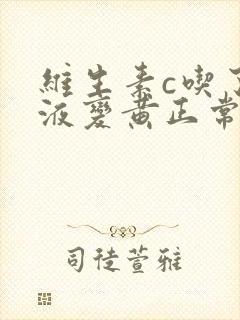 維生素c喫
液變黃正常
司徒萱雅